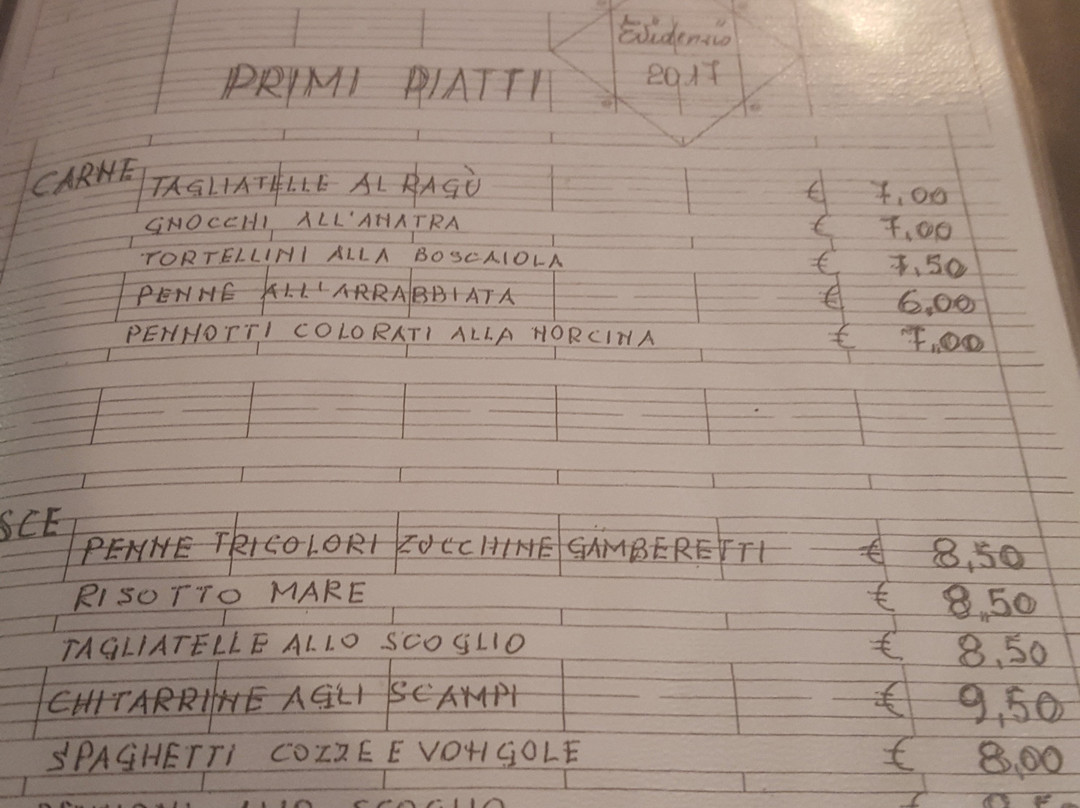 Evidensio
2017
PRIMI PIATTI
CARNE TAGLIATELLE AL RAGÙ € 7,00
GNOCCHI ALL'ANATRA € 7,00
TORTELLINI ALLA BOSCAIOLA € 7,50
PENNE ALL'ARRABBIATA € 6,00
PENNOTTI COLORATI ALLA NORCINA € 7,00
SCE PENNE TRICOLORI ZUCCHINE GAMBERETTI € 8,50
RISOTTO MARE € 8,50
TAGLIATELLE ALLO SCOGLIO € 8,50
CHITARRINE AGLI SCAMPI € 9,50
SPAGHETTI COZZE E VONGOLE € 8,00
SCOGLIO